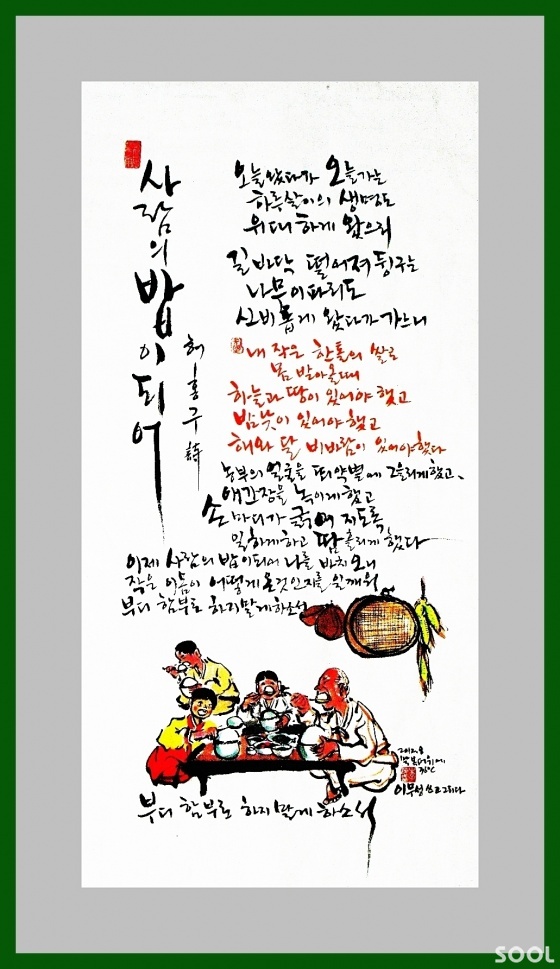 사람의 밥이 되어
허홍구 詩
오늘 왔다가 오늘 가는
하루살이의 생명도
위대하게 왔으리
길바닥 떨어져 뒹구는
나무 이파리도
신비롭게 왔다가 가느니
내 작은 한 톨의 쌀로
몸 받아 올 때
하늘과 땅이 있어야 했고
밤낮이 있어야 했고
해와 달 비바람이 있어야 했다
농부의 얼굴을 뙤약볕에 그을리게 했고、
애간장을 녹이게 했고
손마디가 굵어지도록
일하게 하고 땀 흘리게 했다
이제 사람의 밥이 되어 나를 바치오니
작은 이 몸이 어떻게 온 것인지를 일깨워
부디 함부로 하지 말게 하소서
2012.8
복더위에
이무성 쓰고 그리다
부디 함부로 하지 말게 하소서
SOOL